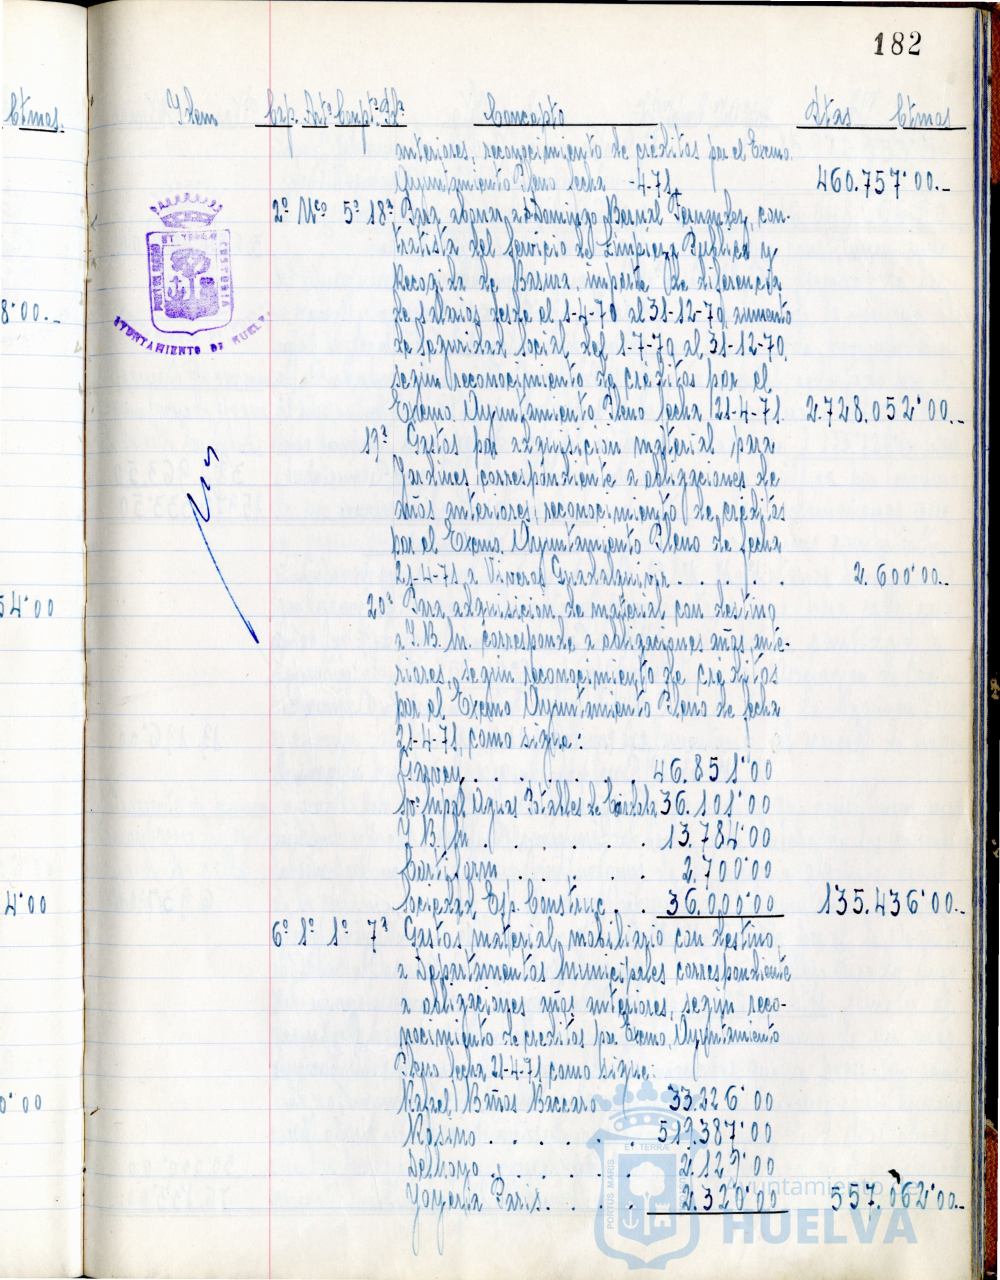 182
Ctmos.
Idem Cap. Artº Conptº Pª Concepto Ptas Ctmos
anteriores, reconocimiento de créditos por el Excmo.
Ayuntamiento Pleno fecha -4-71 460.757'00.-
2º Uco 5º 18ª Para abonar a D. Domingo Bernal Fernandez, con-
tratista del Servicio de Limpieza Publica y
Recogida de Basura, importe de diferencia
de salarios desde el 1-4-70 al 31-12-70, aumento
de Seguridad Social, del 1-7-70 al 31-12-70,
8'00.-
según reconocimiento de créditos por el
Excmo Ayuntamiento Pleno fecha 21-4-71. 2.728.052'00.-
19ª Gastos por adquisición material para
Jardines correspondiente a obligaciones de
años anteriores, reconocimiento de créditos
por el Excmo. Ayuntamiento Pleno de fecha
21-4-71, a Viveros Guadalquivir . . . . 2.600'00.-
54'00
20ª Para adquisición de material con destino
a I.B.M. corresponde a obligaciones años ante-
riores, según reconocimiento de créditos
por el Excmo Ayuntamiento Pleno de fecha
21-4-71, como sigue:
46.851'00
Sº Mpal Aguas Potables de Córdoba 36.101'00
I.B.M. . . . . 13.784'00
. . . 2.700'00
4'00
Sociedad Esp. Construc. . 36.000'00 135.436'00.-
6º 1º 1º 7ª Gastos material, mobiliario con destino,
a Departamentos Municipales correspondiente
a obligaciones años anteriores, según reco-
nocimiento de créditos por Excmo. Ayuntamiento
Pleno fecha 21-4-71, como sigue:
0'00
Rafael Baños Baccaro 33.226'00
Rosino . . . . . . 519.387'00
. . . . . 2.129'00
Joyería Paris. . . . 2.320'00 557.062'00.-
ET TERRÆ
PORTUS MARIS
CUSTODIA
AYUNTAMIENTO DE HUELVA
Ayuntamiento de
HUELVA